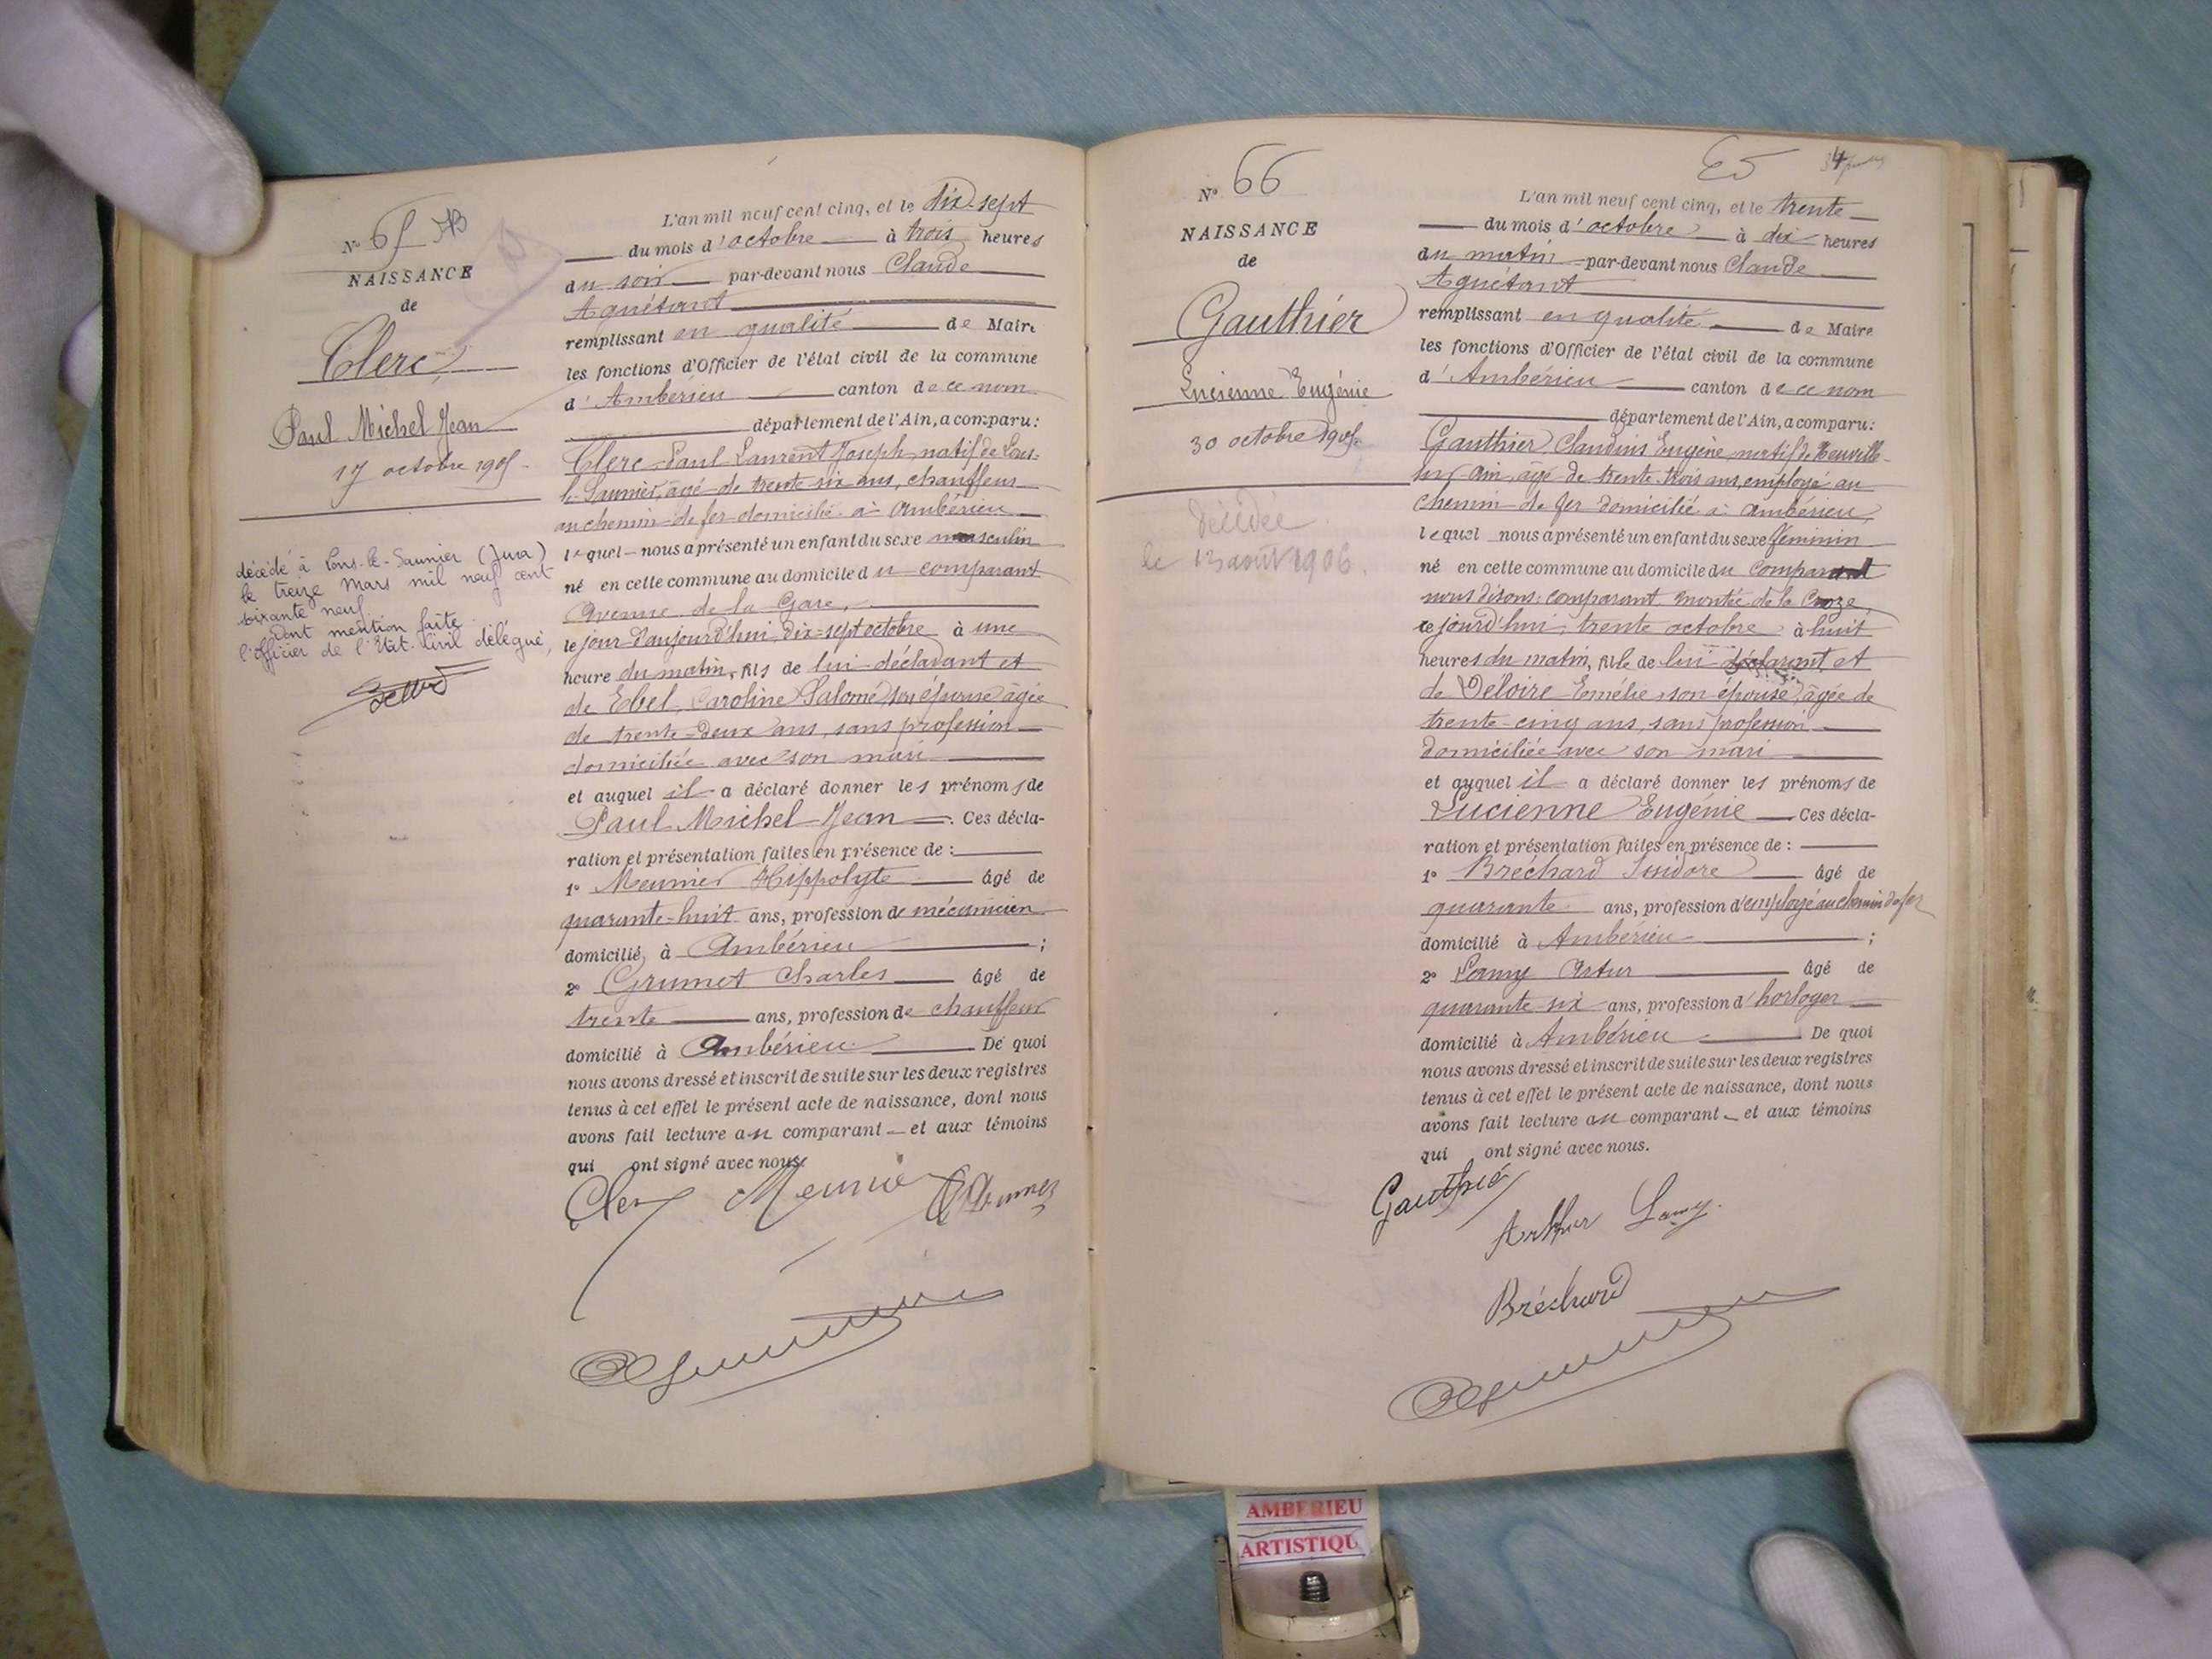 N° 65
NAISSANCE
de
Clerc
Paul Michel Jean
17 octobre 1905
décédé à Lons-le-Saunier (Jura)
le treize Mars mil neuf cent
soixante neuf.
Dont mention faite.
l'officier de l'Etat-Civil délégué,
L'an mil neuf cent cinq, et le dix-sept
du mois d'octobre à trois heures
du soir par-devant nous Claude
Aguétant
remplissant en qualité de Maire
les fonctions d'Officier de l'état civil de la commune
d'Ambérieu canton de ce nom
département de l'Ain, a comparu:
Clerc Paul Laurent Joseph, natif de Lons-
le-Saunier, âgé de trente six ans, chauffeur
au chemin de fer domicilié à Ambérieu
lequel nous a présenté un enfant du sexe masculin
né en cette commune au domicile du comparant
avenue de la Gare,
le jour d'aujourd'hui dix-sept octobre à une
heure du matin, fils de lui déclarant et
de Ebel, Caroline Salomé son épouse âgée
de trente-deux ans, sans profession
domiciliée avec son mari
et auquel il a déclaré donner les prénoms de
Paul Michel Jean. Ces décla-
ration et présentation faites en présence de :
1° Meunier Hippolyte âgé de
quarante-huit ans, profession de mécanicien
domicilié à Ambérieu ;
2° Grumet Charles âgé de
trente ans, profession de chauffeur
domicilié à Ambérieu De quoi
nous avons dressé et inscrit de suite sur les deux registres
tenus à cet effet le présent acte de naissance, dont nous
avons fait lecture au comparant et aux témoins
qui ont signé avec nous.
Clerc Meunier Grumet
N° 66
NAISSANCE
de
Gauthier
Lucienne Eugénie
30 octobre 1905
Décédée
le 13 août 1906.
L'an mil neuf cent cinq, et le trente
du mois d'octobre à dix heures
du matin par-devant nous Claude
Aguétant
remplissant en qualité de Maire
les fonctions d'Officier de l'état civil de la commune
d'Ambérieu canton de ce nom
département de l'Ain, a comparu:
Gauthier, Claudius Eugène, natif de Neuville
sur Ain, âgé de trente-trois ans, employé au
chemin de fer domicilié à Ambérieu,
lequel nous a présenté un enfant du sexe féminin
né en cette commune au domicile du comparant
nous disons: comparant montée de la Croze,
ce jourd'hui, trente octobre à huit
heures du matin, fille de lui déclarant et
de Deloire Emélie, son épouse, âgée de
trente-cinq ans, sans profession
domiciliée avec son mari
et auquel il a déclaré donner les prénoms de
Lucienne Eugénie Ces décla-
ration et présentation faites en présence de :
1° Bréchard Isidore âgé de
quarante ans, profession d'employé au chemin de fer
domicilié à Ambérieu ;
2° Lamy Artur âgé de
quarante-six ans, profession d'horloger
domicilié à Ambérieu De quoi
nous avons dressé et inscrit de suite sur les deux registres
tenus à cet effet le présent acte de naissance, dont nous
avons fait lecture au comparant et aux témoins
qui ont signé avec nous.
Gauthier
Arthur Lamy.
Bréchard
AMBERIEU
ARTISTIQU